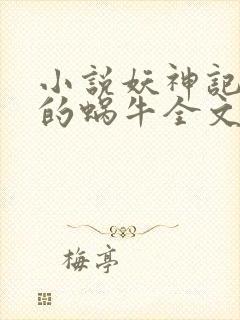 小説妖神記
的蝸牛全文
梅亭